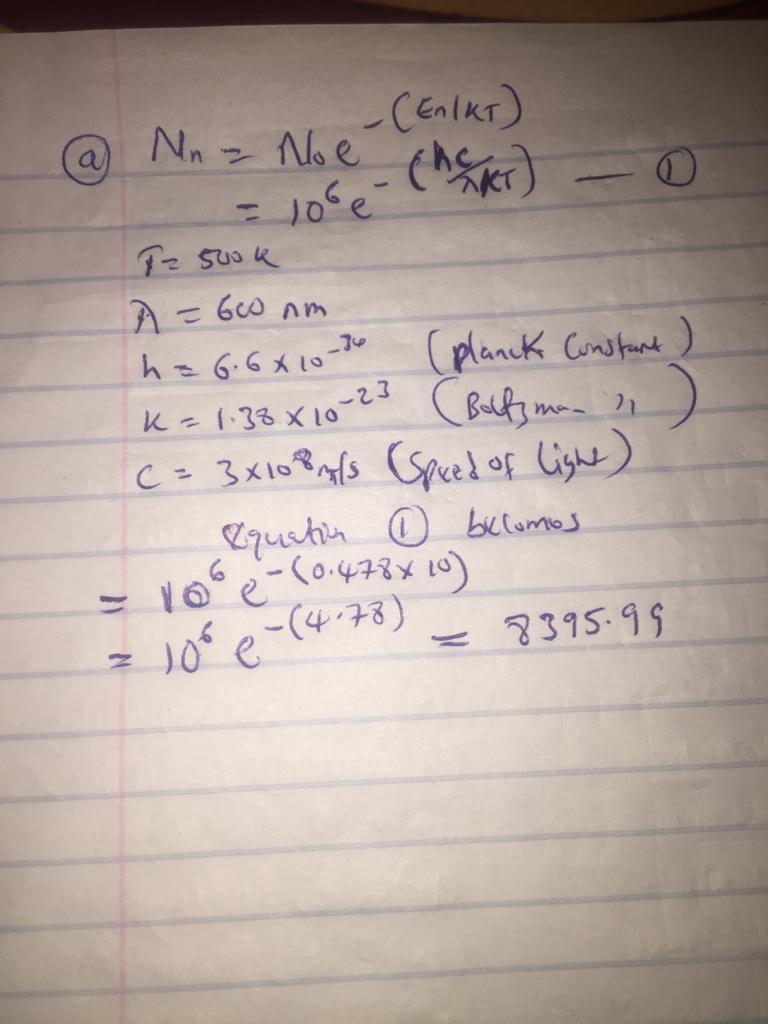 ⓐ Nn = N₀e^-(En/KT)
= 10⁶e^-(hc/λKT) — ①
T = 500k
λ = 600 nm
h = 6.6 x 10^-34 (planck Constant)
K = 1.38 x 10^-23 (Boltzman ")
C = 3x10⁸ m/s (Speed of light)
Equation ① becomes
= 10⁶ e^-(0.478x10)
= 10⁶ e^-(4.78) = 8395.99